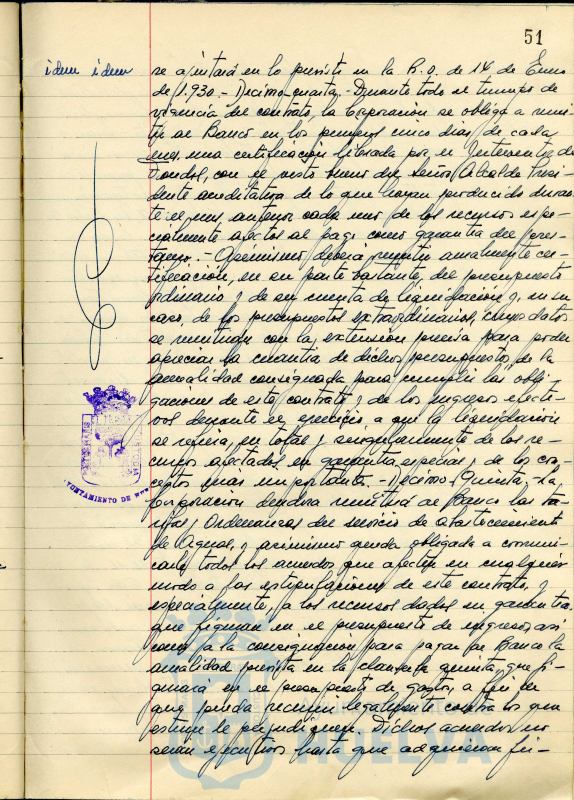 51
idem idem
se ajustará en lo previsto en la R.O. de 14 de Enero
de 1.930.- Décimo cuarta.- Durante todo el tiempo de
vigencia del contrato, la Corporación se obliga a remi-
tir al Banco en los primeros cinco días de cada
mes, una certificación librada por el Interventor de
Fondos, con el visto bueno del Señor Alcalde Presi-
dente acreditativa de lo que hayan producido duran-
te el mes anterior cada uno de los recursos espe-
cialmente afectos al pago como garantía del prés-
tamo.- Asimismo deberá remitir anualmente cer-
tificación, en su parte bastante, del presupuesto
ordinario y de su cuenta de liquidación y, en su
caso, de los presupuestos extraordinarios, cuyos datos
se remitirán con la extensión precisa para poder
apreciar la cuantía de dichos presupuestos, de la
anualidad consignada para cumplir las obli-
gaciones de este contrato y de los ingresos efecti-
vos durante el ejercicio a que la liquidación
se refiera, en total y singularmente de los re-
cursos afectados en garantía especial y de los con-
ceptos más importantes.- Décimo Quinta.- La
Corporación deudora remitirá al Banco las ta-
rifas y Ordenanzas del servicio de abastecimiento
de Aguas, y asimismo queda obligada a comuni-
carle todos los acuerdos que afecten en cualquier
modo a las estipulaciones de este contrato y
especialmente, a los recursos dados en garantía
que figuran en el presupuesto de ingresos, así
como a la consignación para pagar al Banco la
anualidad prevista en la cláusula quinta, que fi-
gurará en el presupuesto de gastos, a fin de
que pueda recurrir legalmente contra los que
estime le perjudiquen. Dichos acuerdos no
serán ejecutivos hasta que adquieran fir-
AYUNTAMIENTO DE
HUELVA